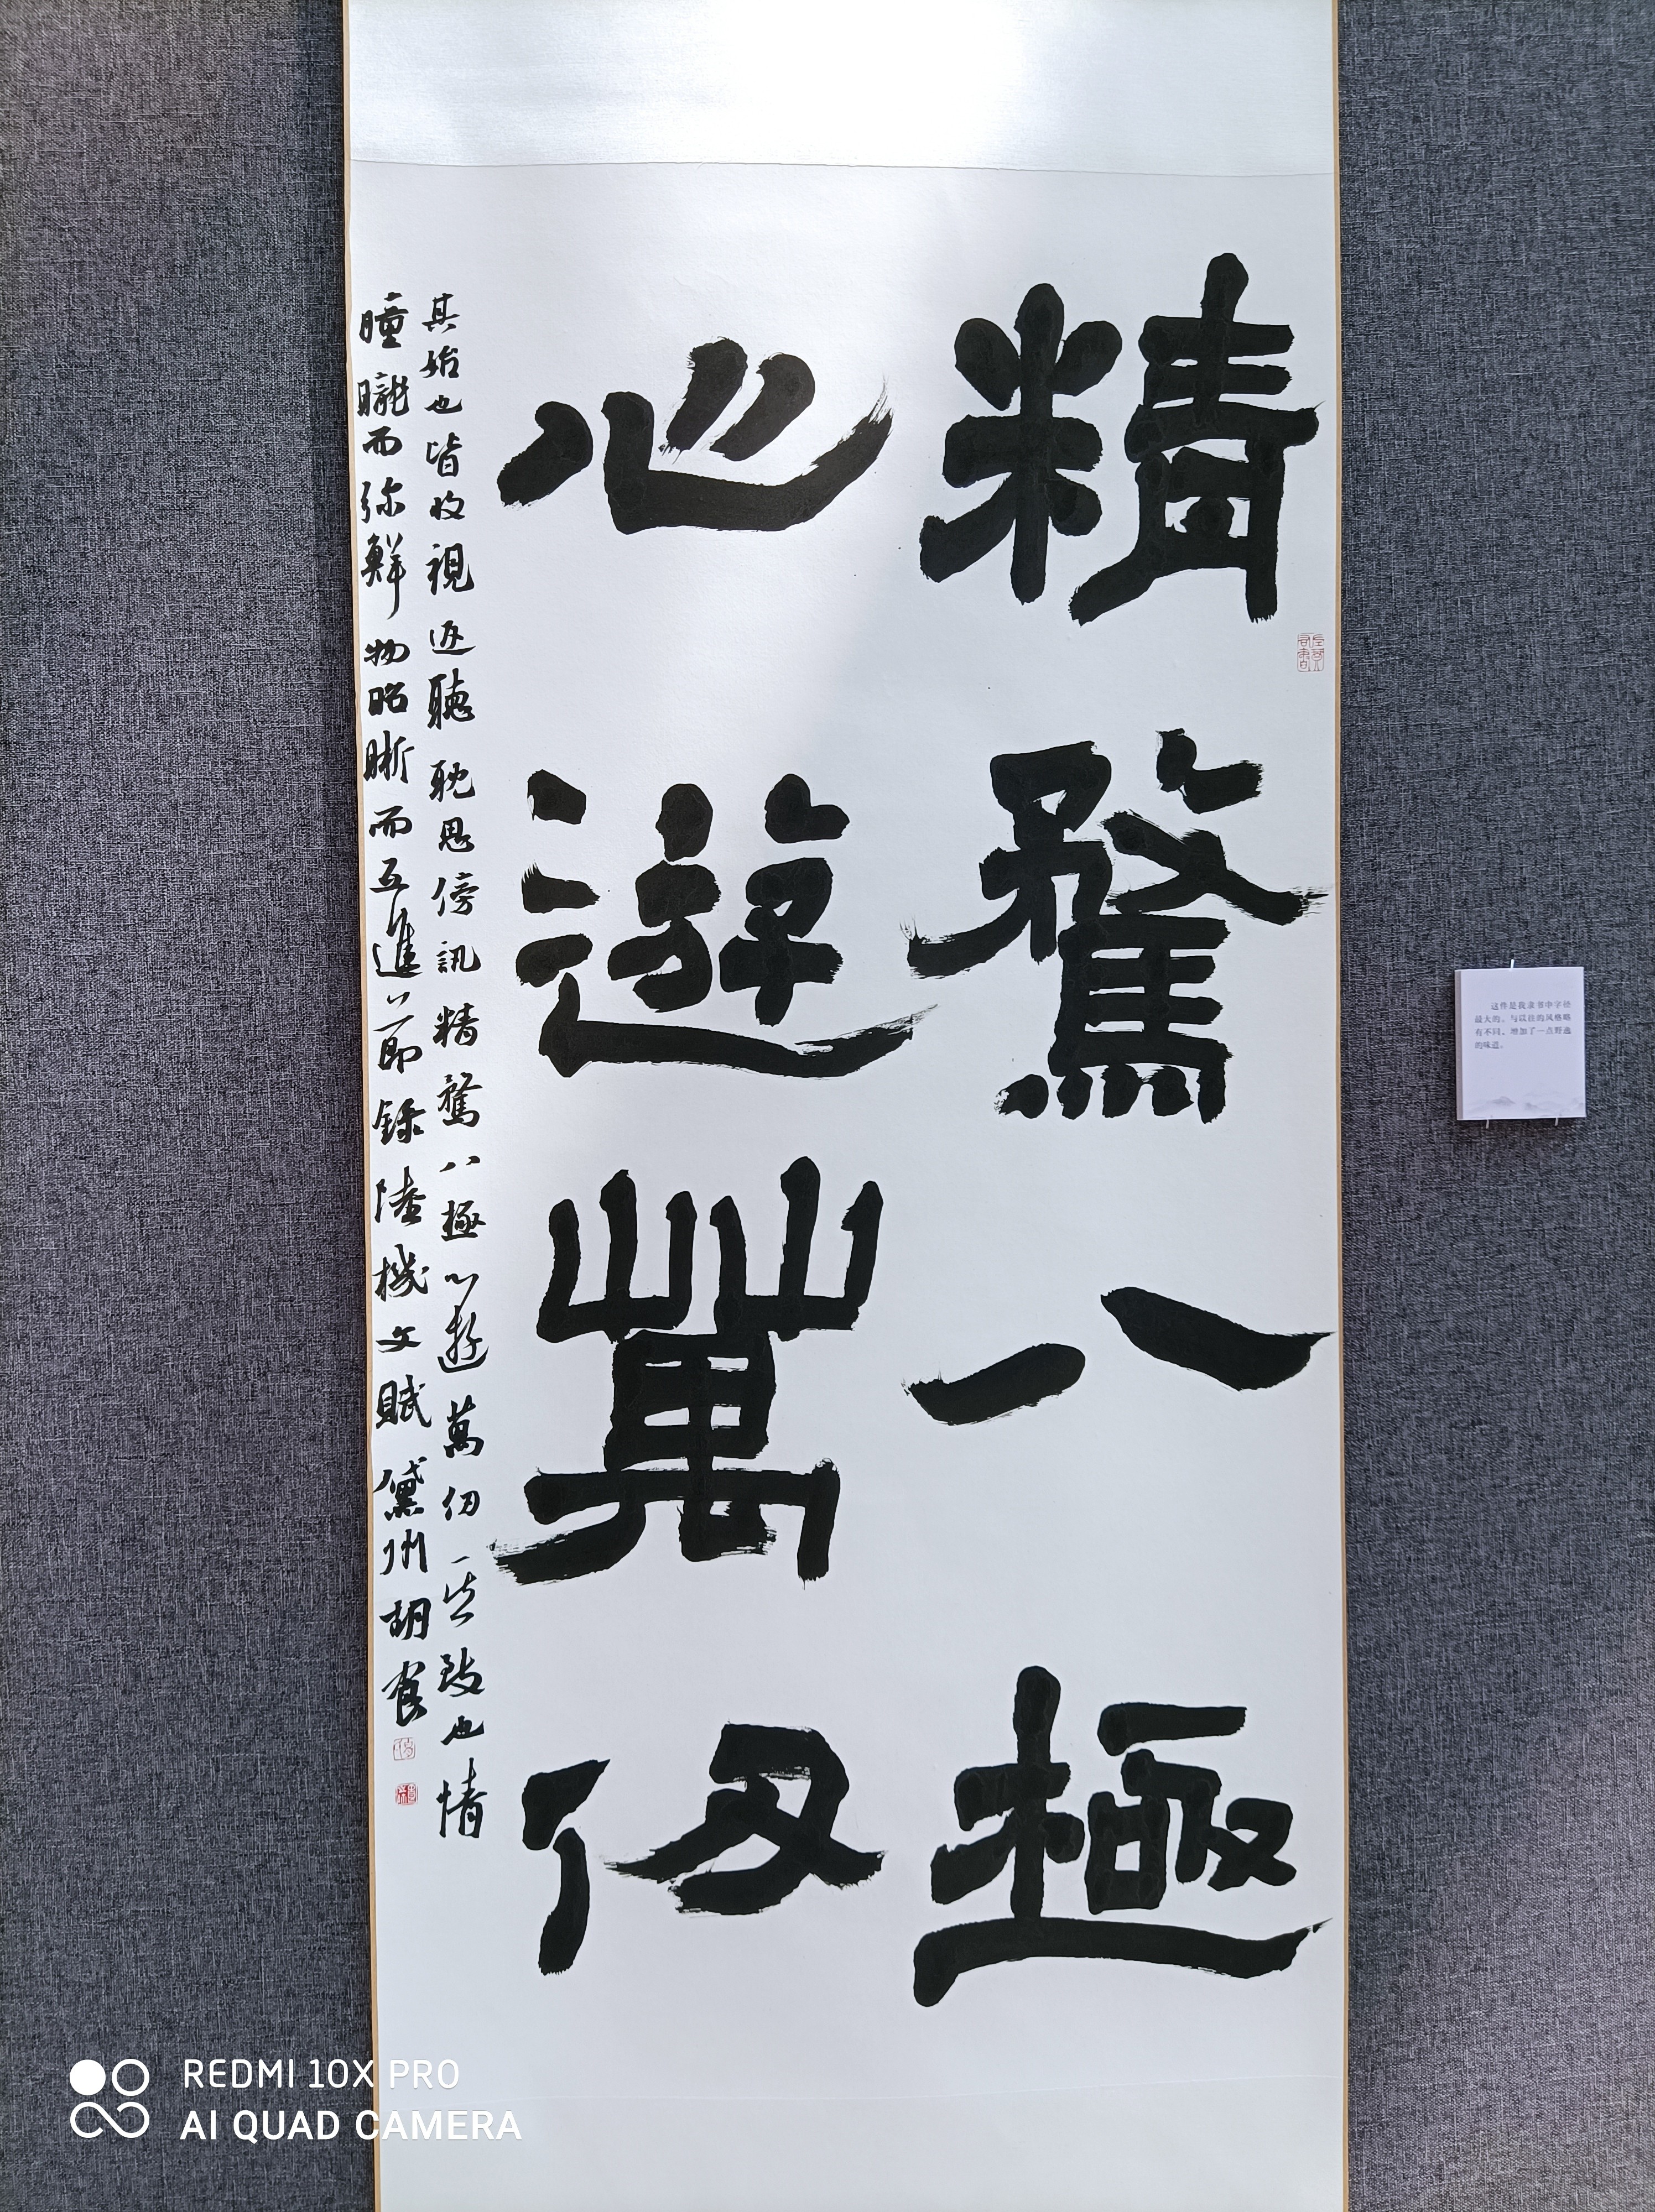 精騖八極
心遊萬仞
其始也皆收視返聽耽思傍訊精騖八極心遊萬仞其致也情
瞳矓而弥鮮物昭晣而互進節錄陸機文賦黛州胡
这件是我隶书中字径
最大的。与以往的风格略
有不同，增加了一点野逸
的味道。
REDMI 10X PRO
AI QUAD CAMERA